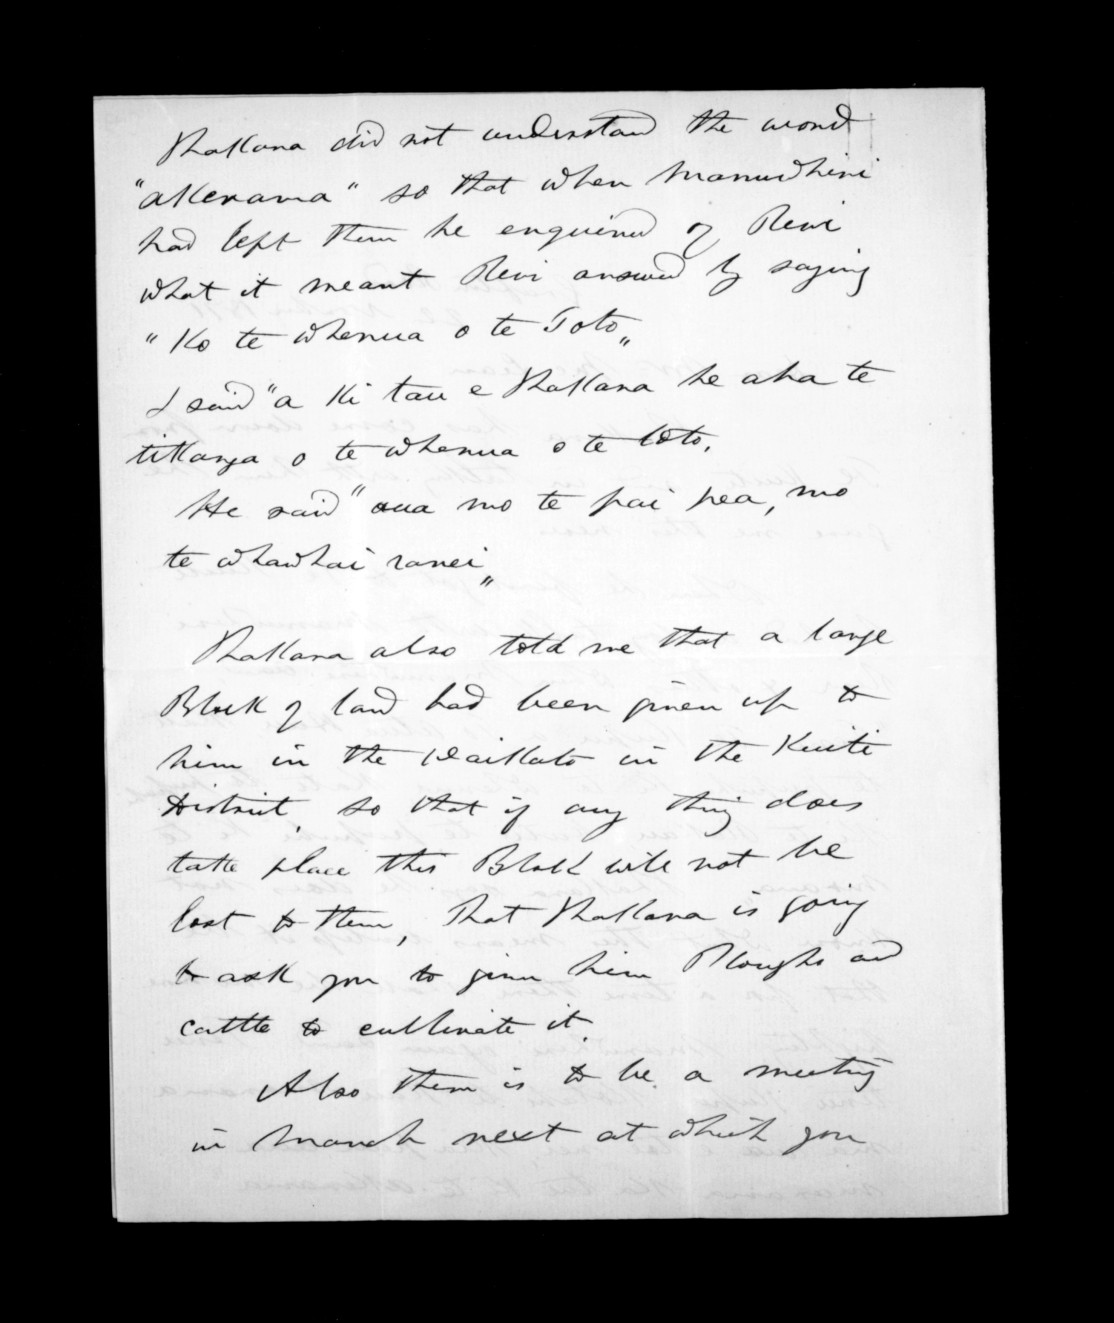 Thakana did not understand the word
"akerama" so that when Manuwhiri
had left them he enquired of Rewi
what it meant Rewi answed by saying
"Ko te whenua o te Toto"
I said "a Ki tau e Thakana he aha te
tikanga o te whenua o te toto.
He said "aua mo te pai pea, mo
te whawhai ranei"
Thakana also told me that a large
Block of land had been given up to
him in the Waikato in the Kuiti
District, so that if any thing does
take place this Block will not be
lost to them, that Thakana is going
to ask you to give him Ploughs and
cattle to cultivate it
Also there is to be a meeting
in March next at which you